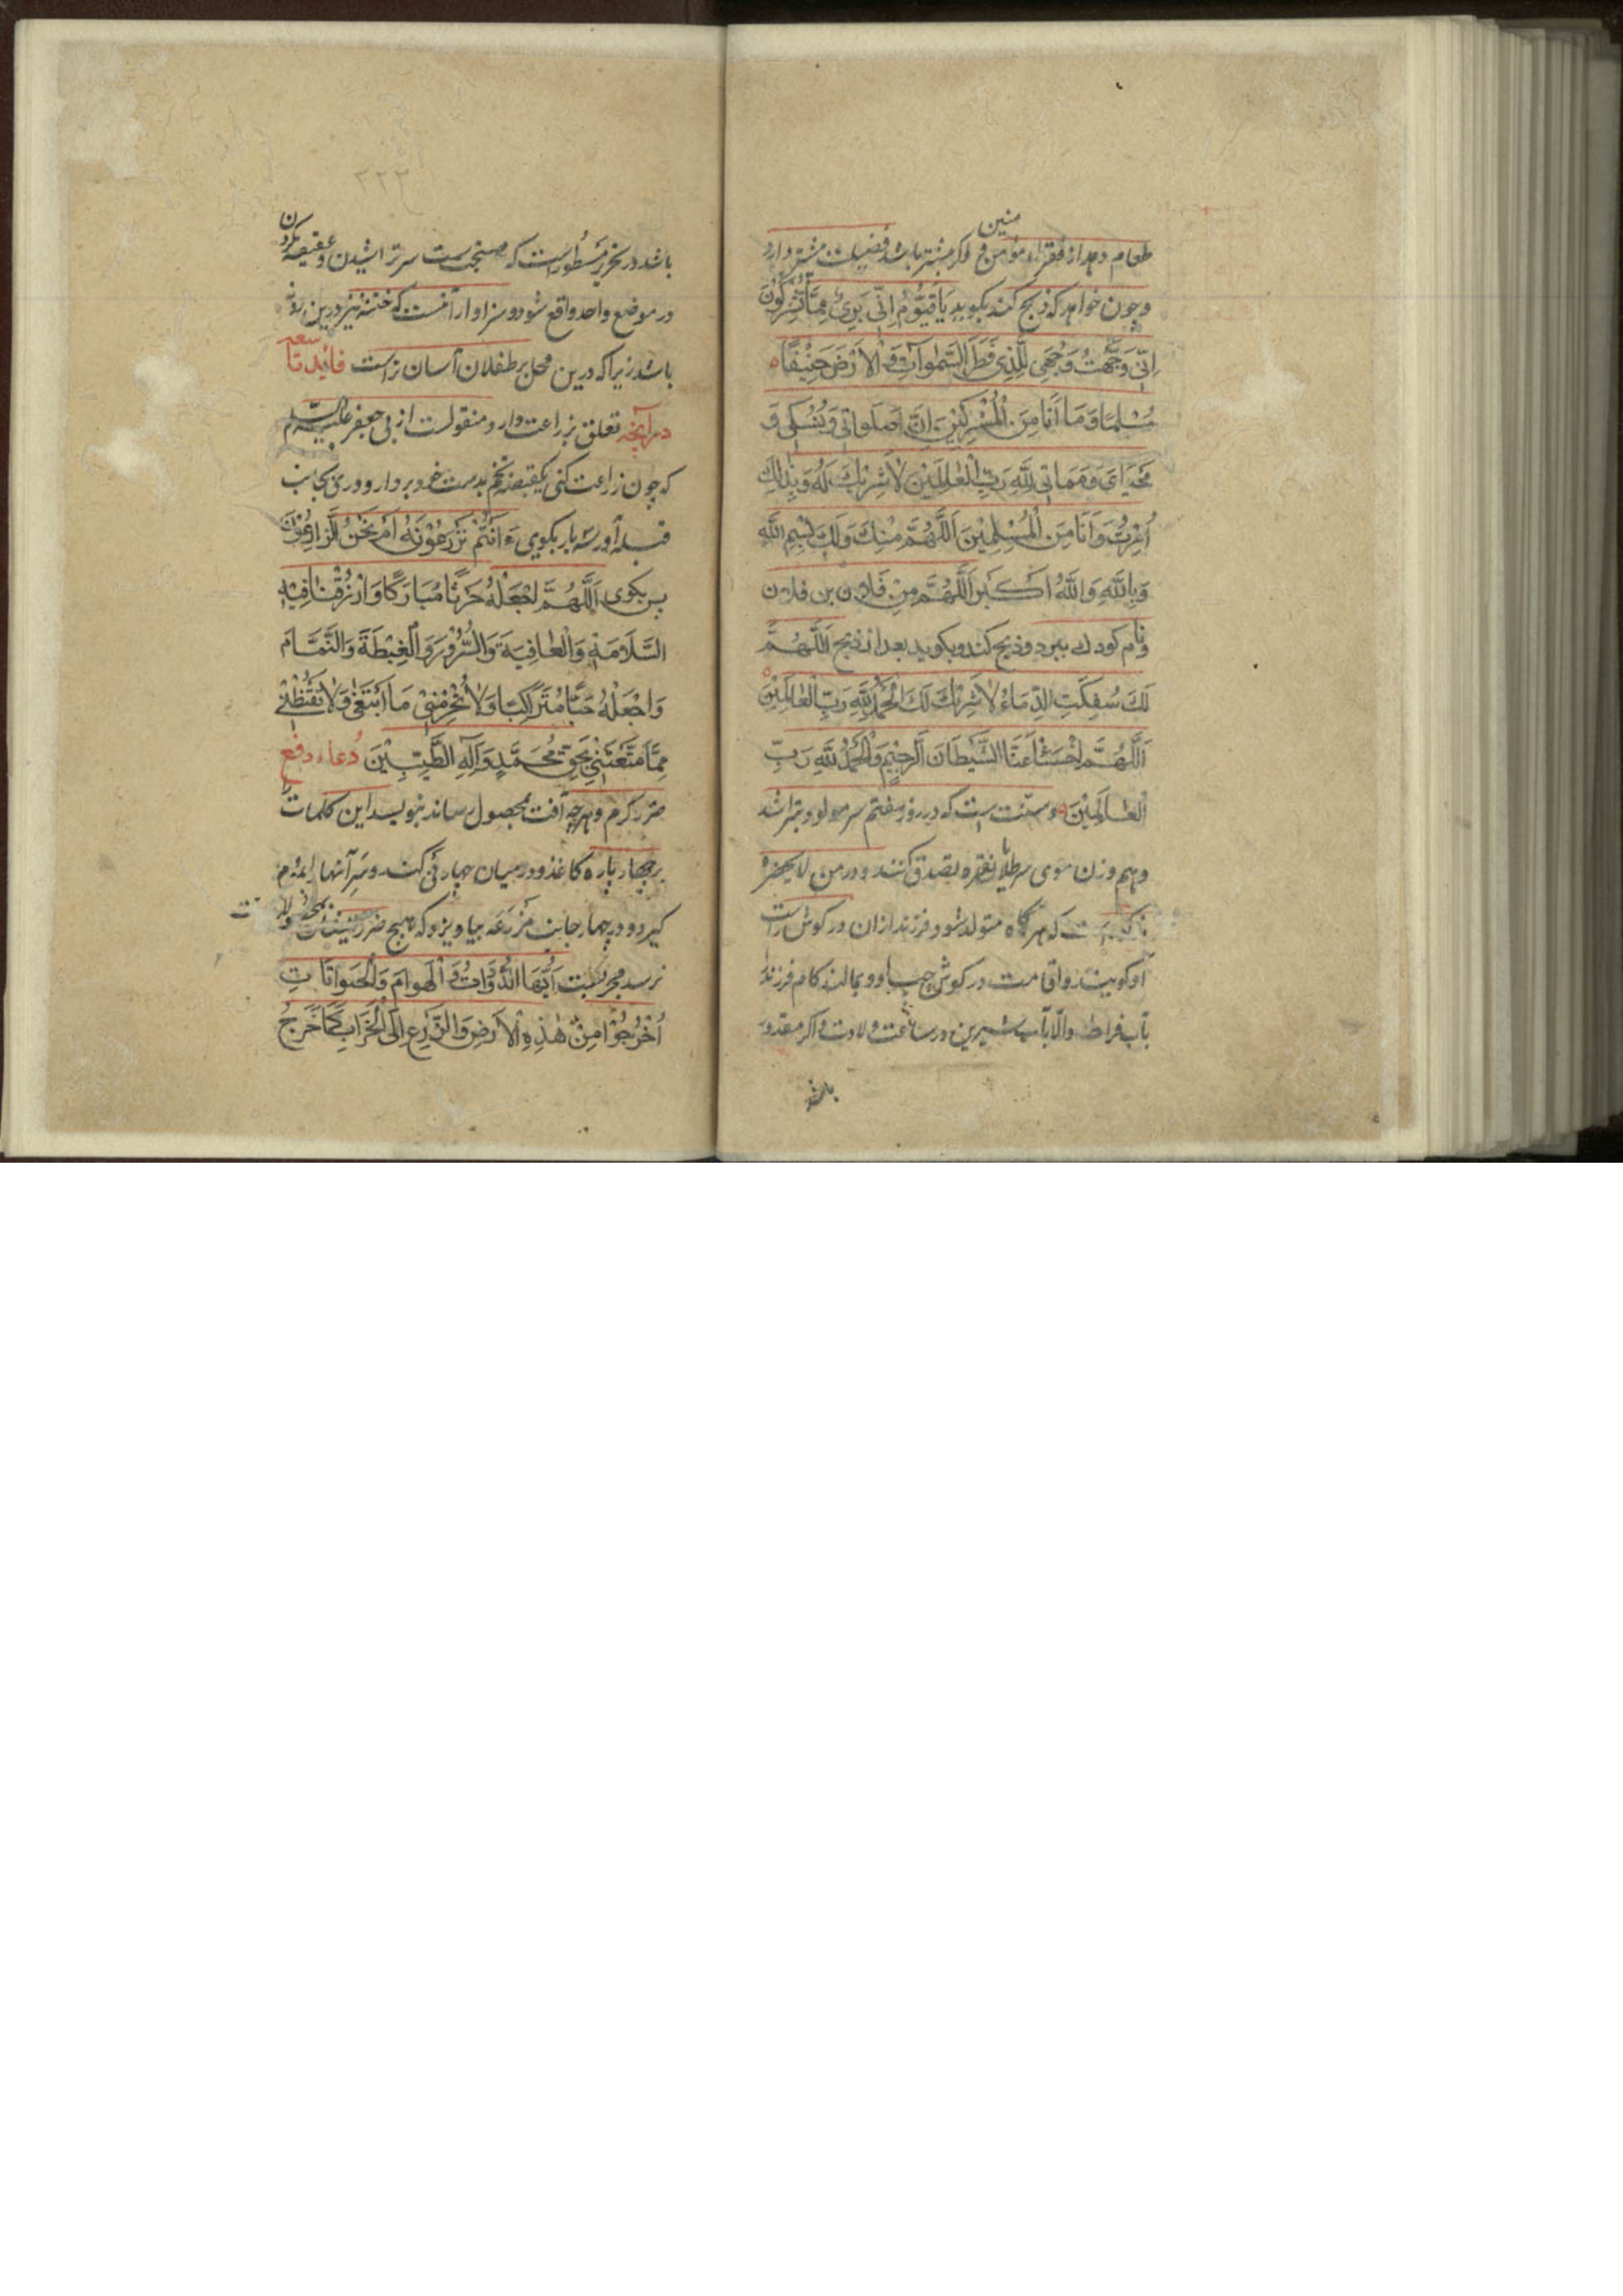 طعام دهد از فقراء مؤمنین و اگر بیشتر باشد فضیلت بیشتر دارد
و چون خواهد که ذبح کند بکوید یَا قَیُّوْمُ اِنِّی بَرِیٌٔ مِمَّا تُشْرِکُوْنَ
اِنِّی وَجَّهْتُ وَجْهِیَ لِلَّذِی فَطَرَ السَّمٰوَاتِ وَالْاَرْضَ حَنِیْفًا
مُسْلِمًا وَمَا اَنَا مِنَ الْمُشْرِکِیْنَ اِنَّ صَلَواتِی وَنُسُکِی وَ
مَحْیَایَ وَمَمَاتِی لِلّٰهِ رَبِّ الْعٰالَمِیْنَ لٰا شَرِیْکَ لَهُ وَبِذٰلِکَ
اُمِرْتُ وَاَنَا مِنَ الْمُسْلِمِیْنَ اَللّٰهُمَّ مِنْکَ وَلَکَ بِسْمِ اللّٰهِ
وَبِاللّٰهِ وَاللّٰهُ اَکْبَر اَللّٰهُمَّ مِنْ فَلان بن فلان
و نام کودک ببرد و ذبح کند و بکوید بعد از ذبح اَللّٰهُمَّ
لَکَ سُفِکَتِ الدِّمَاءُ لٰا شَرِیْکَ لَکَ الْحَمْدُ لِلّٰهِ رَبِّ الْعٰالَمِیْنَ
اَللّٰهُمَّ اخْسَأْ عَنَّا الشَّیْطَانَ الرَّجِیْمَ وَالْحَمْدُ لِلّٰهِ رَبِّ
الْعٰالَمِیْنَ و سنّت است که در روز هفتم سر مولود بتراشد
و هم وزن موی سر طلا یا نقره بصدق کنند و در من لا یحضره
که هرکاه متولد شود فرزند اذان در کوش راست
او کویند و اقامت در کوش چپ او و بمالند کام فرزند
بآب فراط والّا بآب شیرین در ساعت ولادت و اکر مقدور
باشد
۲۲۳
باشد در تحریر مسطور است که مستحب است سر تراشیدن و عقیقه کردن
در موضع واحد واقع شود و سزاوار آنست که ختنه نیز درین روز
باشد زیرا که درین محل بر طفلان آسان تر است فائده تاسعه
در آنچه تعلق بزراعت دارد منقولست از بی جعفر علیه السّلام
که چون زراعت کنی یکقبضه تخم بدست خود بردار و روی بجانب
قبله آور سه بار بکوی ءَاَنْتُمْ تَزْرَعُوْنَهُ اَمْ نَحْنُ الزَّارِعُوْنَ
پس بکوی اَللّٰهُمَّ اجْعَلْهُ حَرْثًا مُبَارَکًا وَارْزُقْنَا فِیْهِ
السَّلَامَةَ وَالْعٰافِیَةَ وَالسُّرُوْرَ وَالْغِبْطَةَ وَالتَّمَامَ
وَاجْعَلْهُ حَبًّا مُتَرَاکِبًا وَلٰا تُحْرِمْنِیْ مَا اَبْتَغِیْ وَلٰا تَفْتِنِّیْ
مِمَّا مَتَّعْتَنِیْ بِحَقِّ مُحَمَّدٍ وَآلِهِ الطَّیِّبِیْنَ دُعاء دفع
ضرر کرم و هرچه آفت بمحصول رساند بنویسد این کلمات
بر چهار پاره کاغذ و در میان چهار نی کند و سر آنها را بموم
کیرد و در چهار جانب مزرعه بیاویزد که هیچ ضرر
نرسد مجرّبست اَیُّهَا الدُّوَّابُ وَالْهَوَامُ وَالْحَیَوَانَاتِ
اُخْرُجُوْا مِنْ هٰذِهِ الْاَرْضِ وَالزَّرْعِ اِلَی الْخَرَابِ کَمَا خَرَجَ